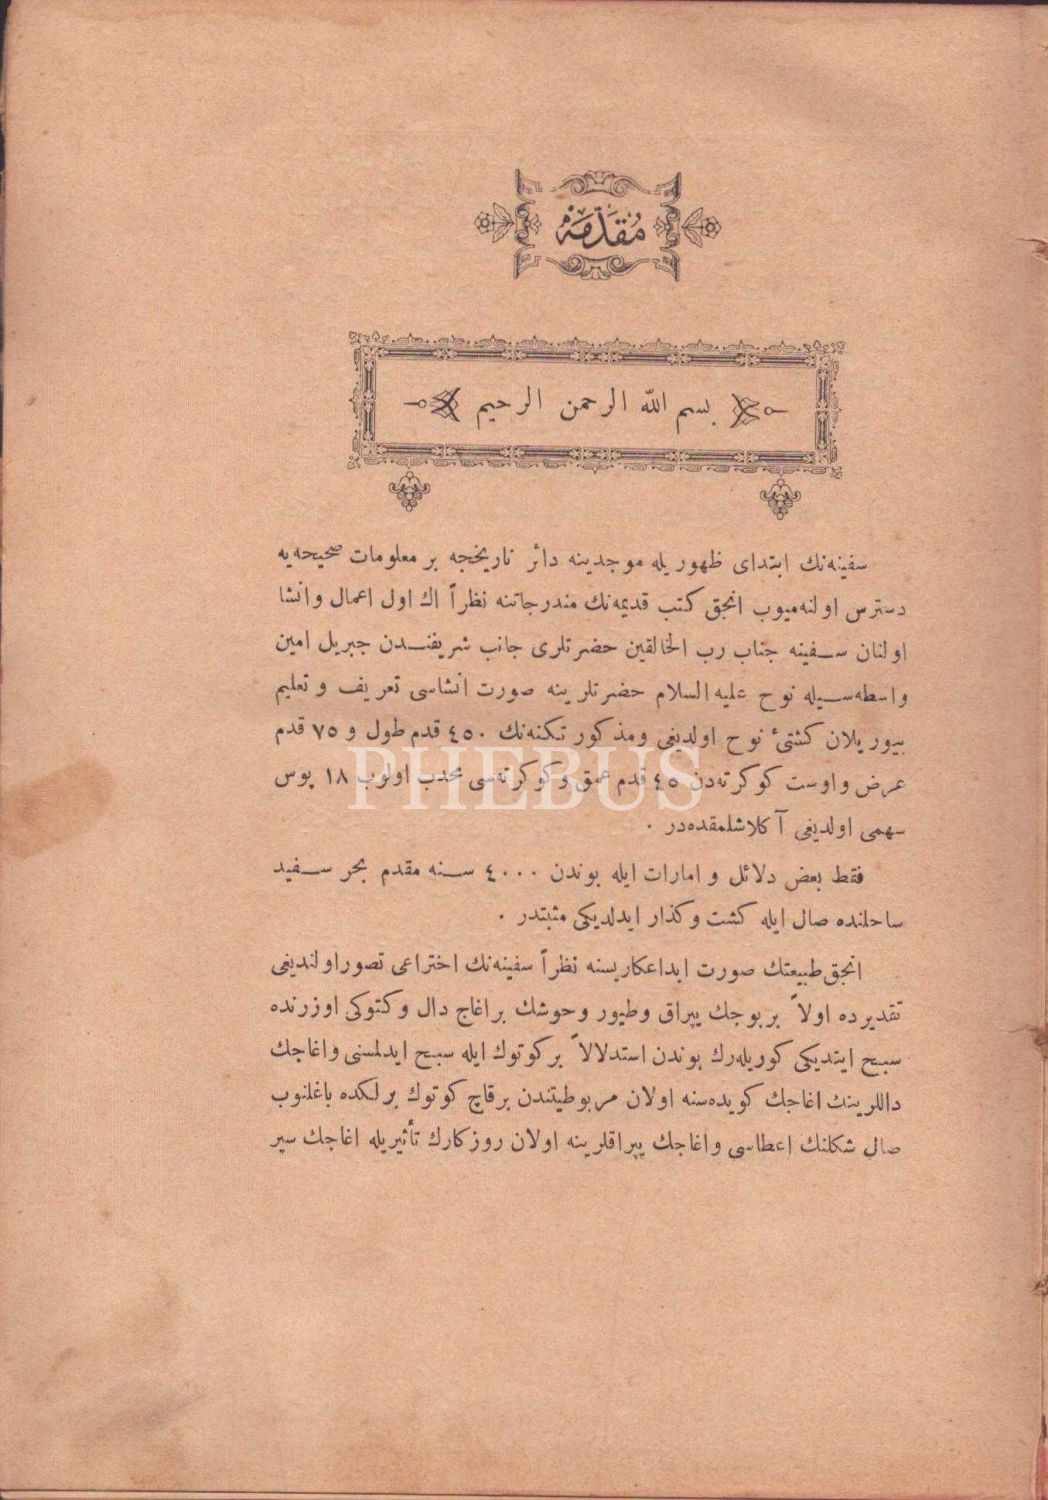 مُقَدِّمَه
بسم الله الرحمن الرحيم
سفینه‌نك ابتدای ظهوریله موجدینه دائر تاریخجه بر معلومات صحیحه‌یه
دسترس اولنه‌میوب انجق كتب قدیمه‌نك مندرجاتنه نظراً اك اول اعمال وانشا
اولنان سفینه جناب رب الخالقین حضرتلری جانب شریفندن جبریل امین
واسطه‌سیله نوح علیه السلام حضرتلرینه صورت انشاسی تعریف و تعلیم
بیوریلان كشتیٔ نوح اولدیغی ومذكور تكنه‌نك ٤٥٠ قدم طول و ٧٥ قدم
عرض واوست كوكرته‌دن ٤٥ قدم عمق وكوكرته‌سی محدب اولوب ١٨ پوس
سهمی اولدیغی آكلاشلمقده‌در .
فقط بعض دلائل و امارات ایله بوندن ٤٠٠٠ سنه مقدم بحر سفید
ساحلنده صال ایله كشت وكذار ایدلدیكی مثبتدر .
انجق طبیعتك صورت ابداعكاریسنه نظراً سفینه‌نك اختراعی تصور اولندیغی
تقدیرده اولاً بر بوجك یپراق وطیور وحوشك بر اغاج دال وكتوكی اوزرنده
سبح ایتدیكی كوریله‌رك بوندن استدلالاً بر كوتوك ایله سبح ایدلمسنی واغاجك
داللرینك اغاجك كویده‌سنه اولان مربوطیتندن برقاچ كوتوك برلكده باغلنوب
صال شكلنك اعطاسی واغاجك یپراقلرینه اولان روزكارك تأثیریله اغاجك سیر
PHEBUS